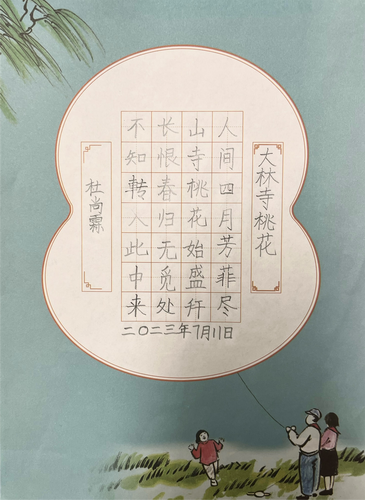 大林寺桃花
人间四月芳菲尽
山寺桃花始盛开
长恨春归无觅处
不知转入此中来
杜尚霖
二〇二三年7月11日